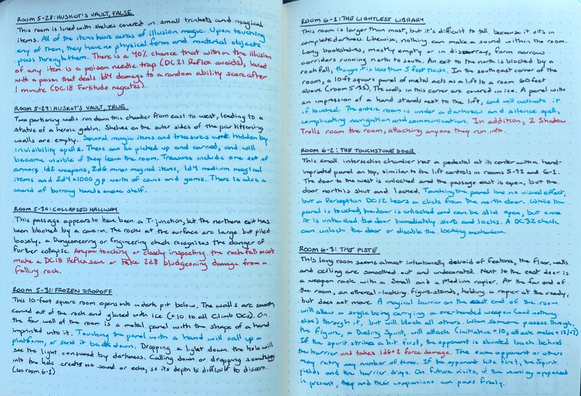 ROOM 5-28: HUSKOT'S VAULT, FALSE
This room is lined with shelves covered in small trinkets and magical
items. All of the items have auras of illusion magic. Upon touching
any of them, they have no physical form and material objects
pass through them. There is a 40% chance that within the illusion
of any item is a poison needle trap (DC 21 Reflex avoids), laced
with a poison that deals 1d4 damage to a random ability score after
1 minute (DC 18 Fortitude negates).
ROOM 5-29: HUSKOT'S VAULT, TRUE
Two partitioning walls run down this chamber from east to west, leading to a
statue of a heroic goblin. Shelves on the outer sides of the partitioning
walls are empty. Several magic items and treasures are hidden by
invisibility spells. These can be picked up and carried, and will
become visible if they leave the room. Treasures include one set of
armor, 1d2 weapons, 2d6 minor magic items, 1d4 medium magic
items and 2d4x1000 gp worth of coins and gems. There is also a
wand of burning hands on one shelf.
ROOM 5-30: COLLAPSED HALLWAY
This passage appears to have been a T-junction, but the northern exit has
been blocked by a cave-in. The rocks at the surface are large but piled
loosely. A Dungeoneering or Engineering check recognizes the danger of
further collapse. Anyone touching or closely inspecting the rock fall must
make a DC 18 Reflex save or take 2d8 bludgeoning damage from a
falling rock.
ROOM 5-31: FROZEN DROPOFF
This 10-foot square room opens into a dark pit below. The walls are smoothly
carved out of the rock and glazed with ice (+10 to all Climb DCs). On
the far wall of the room is a metal panel with the shape of a hand
imprinted into it. Touching the panel with a hand will call up a
platform, or send it back down. Dropping a light down the hole will
see the light consumed by darkness. Calling down or dropping something
into the hole creates no sound or echo, so its depth is difficult to discern.
(see room 6-1)
ROOM 6-1: THE LIGHTLESS LIBRARY
This room is larger than most, but it's difficult to tell because it's in
complete darkness. Likewise, nothing can make a sound within the room.
Long bookshelves, mostly empty or in disarray, form narrow
corridors running north to south. An exit to the north is blocked by a
rockfall, though it is less than 5 feet thick. In the southeast corner of the
room, a 10ft square panel of metal acts as a lift to a room 60 feet
above (room 5-31). The walls in this corner are covered in ice. A panel
with an impression of a hand stands next to the lift, and will activate it
if touched. The entire room is under a darkness and a silence spell,
complicating navigation and communication. In addition, 2 Shadow
Trolls roam the room, attacking anyone they run into.
ROOM 6-2: THE TOUCHSTONE DOOR
This small intersection chamber has a pedestal at its center with a hand-
imprinted panel on top, similar to the lift controls in rooms 5-31 and 6-1.
The door to the west is unlocked and the passage east is open, but the
door north is shut and locked. Touching the panel has no visual effect,
but a Perception DC 12 hears a click from the north door. While the
panel is touched, the door is unlocked and can be slid open, but once
it is untouched the door immediately shuts and locks. A DC 32 check
can unlock the door or disable the locking mechanism.
ROOM 6-3: THE PISTE
This long room seems almost intentionally devoid of features, the floor, walls
and ceiling are smoothed out and undecorated. Next to the east door is
a weapon rack with a
the room, an ethereal-looking figure stands, holding a rapier at the ready,
but does not move. A magical barrier on the east end of the room
will allow a single being carrying a one-handed weapon (and nothing
else) through it, but will block all others. When someone passes through,
the figure, a Dueling Spirit, will attack
If the spirit strikes a hit first, the opponent is shunted back behind
the barrier and takes 1d6+2 force damage. The same opponent or others
may retry any number of times. If the opponent hits first, the Spirit
yields and the barrier drops. On future visits, if the winning opponent
is present, they and their companions can pass freely.